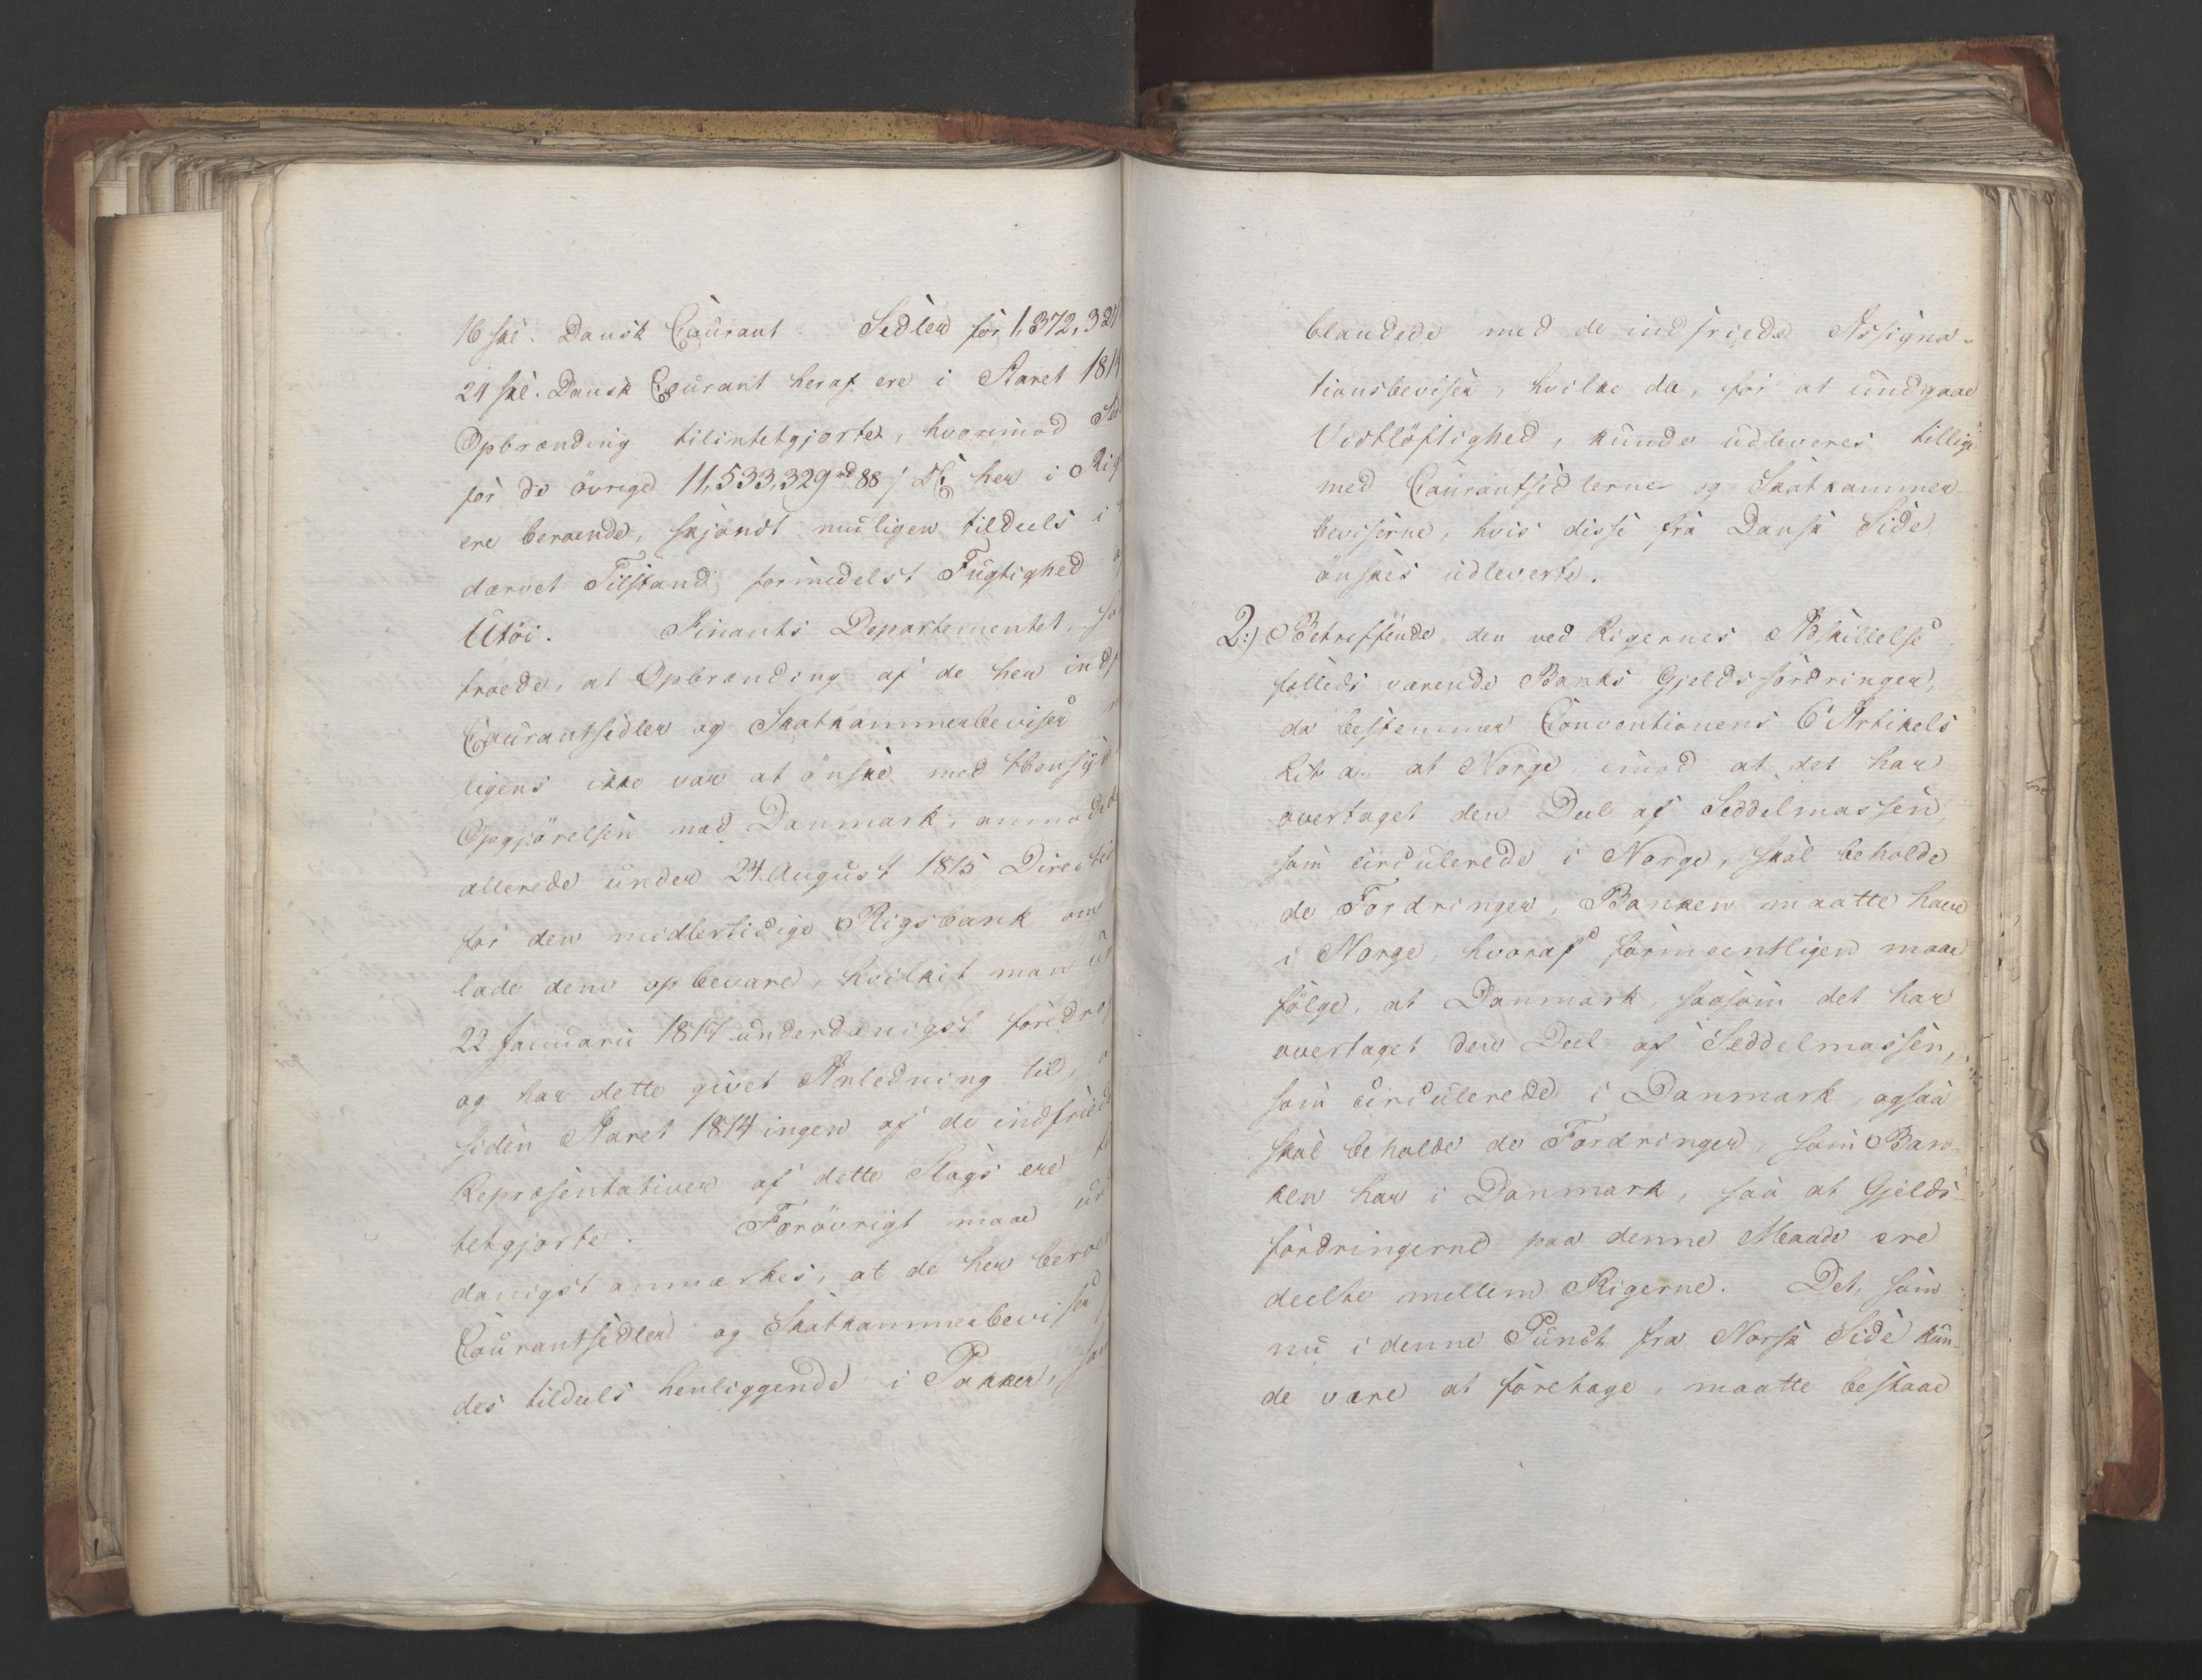 16 ske. Dansk Courant. Sedler for 1,372,32
24 ske. Dansk Courant heraf ere i Aaret 181
Opbrænding tilintetgjorte, hvorimod
for de övrige 11,533,329 rd 88 s her i
ere beroende, skjöndt muligen tildeels i
dærvet Tilstand formedelst Fugtighed
Utöi. Finants Departementet,
troede, at Opbrænding af de her
Courantsedler og Skatkammerbeviser
ligens ikke var at önske med Hensyn
Opgjörelsen med Danmark, anmodede
allerede under 24 August 1815
for den midlertidige Rigsbank om
lade dem opbevare, hvilket man
22 Januarii 1817 underdanigst
og har dette givet Anledning til,
siden Aaret 1814 ingen af de indfriede
Repræsentativer af dette Slags ere
tetgjorte. Forövrigt maae
danigst anmærkes, at de her
Courantsedler og Skatkammerbeviser
des tildeels henliggende i Pakker,
blandede med de indfriede Assigna-
tionsbeviser, hvilke da, for at undgaae
Vidtlöftighed, kunde udleveres tillige
med Courantsedlerne og Skatkammer-
beviserne, hvis disse fra Dansk Side
önskes udleverte.
2:) Betreffende den ved Rigernes Adskillelse
fælleds værende Banks Gjeldsfordringer,
da bestemmer Conventionens 6 Artikels
Lit a. at Norge imod at det har
overtaget den Deel af Seddelmassen,
som circulerede i Norge, skal beholde
de Fordringer, Banken maatte have
i Norge, hvoraf formeentligen maae
fölge, at Danmark, saasom det har
overtaget den Deel af Seddelmassen,
som circulerede i Danmark, ogsaa
skal beholde de Fordringer, som Ban-
ken har i Danmark, saa at Gjelds-
fordringerne paa denne Maade ere
deelte mellem Rigerne. Det, som
nu i denne Punct fra Norsk Side kun-
de være at foretage, maatte bestaae